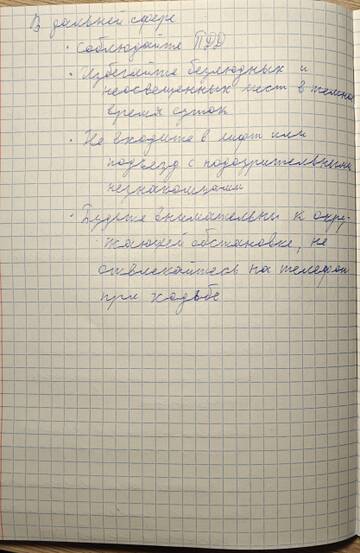 В дальней сфере
· Соблюдайте ПДД
· Избегайте безлюдных и
неосвещенных мест в темное
время суток
· Не входите в лифт или
подъезд с подозрительными
незнакомцами
· Будьте внимательны к окру-
жающей обстановке, не
отвлекайтесь на телефон
при ходьбе